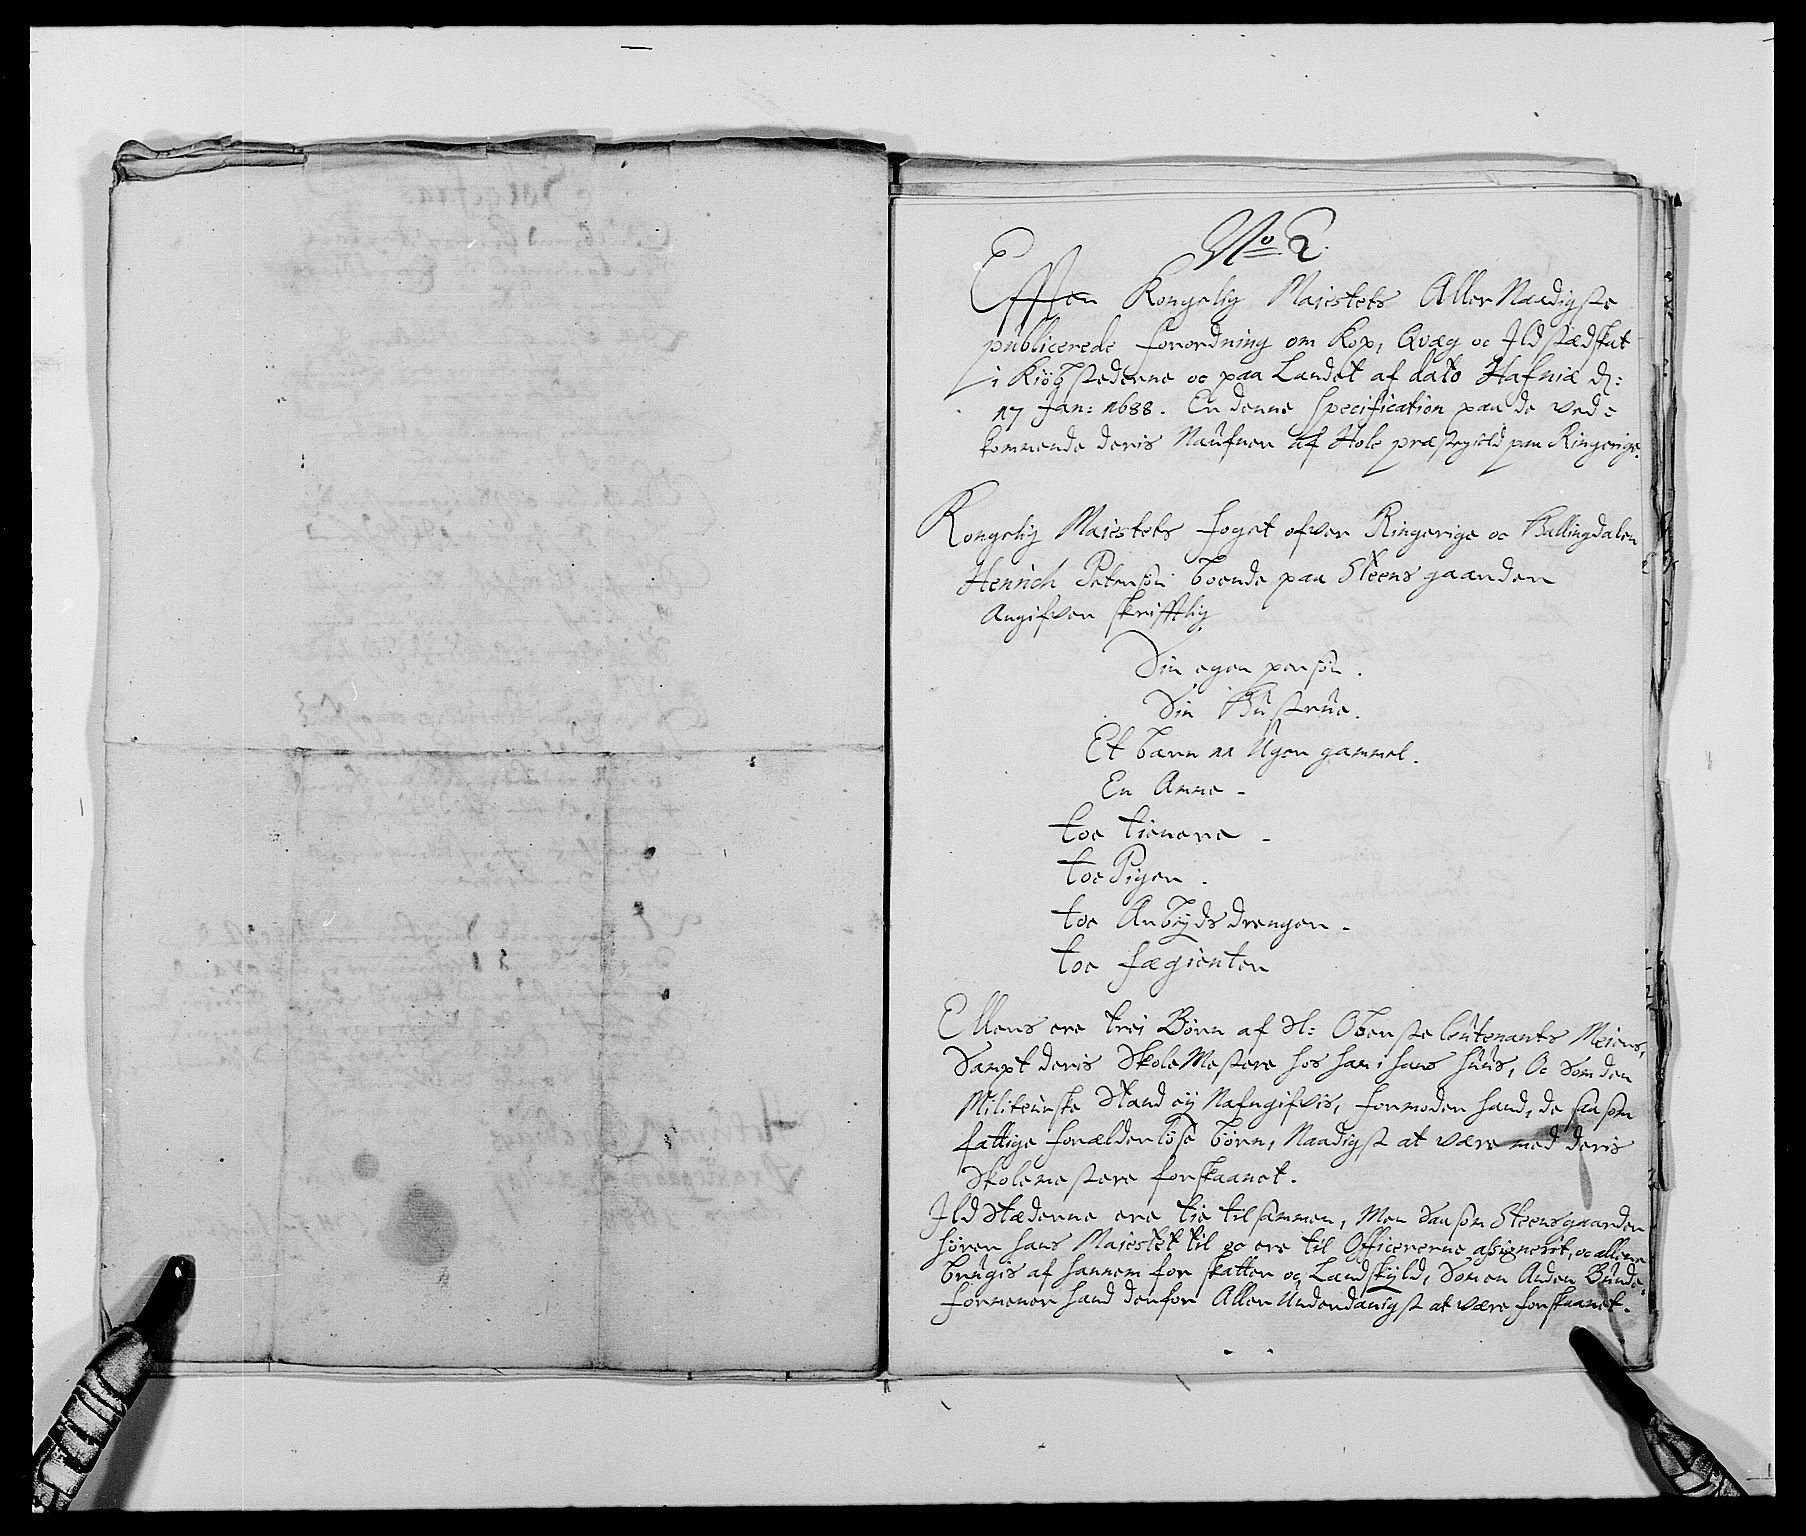 No 2.
Effter Kongelig Majestets Aller Naadigste
publicerede forordning om Kop, Qvæg oc Ildstædskat
i Kiøbstederne oc paa Landet af dato Hafniæ d:
17 Jan: 1688. Er denne Specification paa de ved=
kommende deris Naufner af Hole præstegield paa Ringerige.
Kongelig Majestets foget ofver Ringerige oc Hallingdalen
Henrich Petersøn boende paa Steens gaarden
Angifver skrifftlig
Sin egen person.
Sin Hustrue.
Et barn 11 Uger gammel.
En Amme -
toe tienere -
toe Piger -
toe Arbejds drenger -
toe fægienter
Ellers ere trei Børn af Sl: Oberste leutenants Meiers,
Sampt deris SkoleMestere hos ham i hans huus, Oc Som den
Militeriske Stand ej Nafngifvis, formoder hand, de saasom
fattige forælderløse børn, Naadigst at være med deris
Skolemestere forskaanet.
Ild Stæderne ere tie tilsammen, Men Saasom Steensgaarden
hører hans Majestet til oc ere til Officererne assignerit, oc allene
brugis af hannem for skatter og Landskyld, Som en Anden Bunde,
formener hand derfor Aller Underdanigst at være forskaanet.